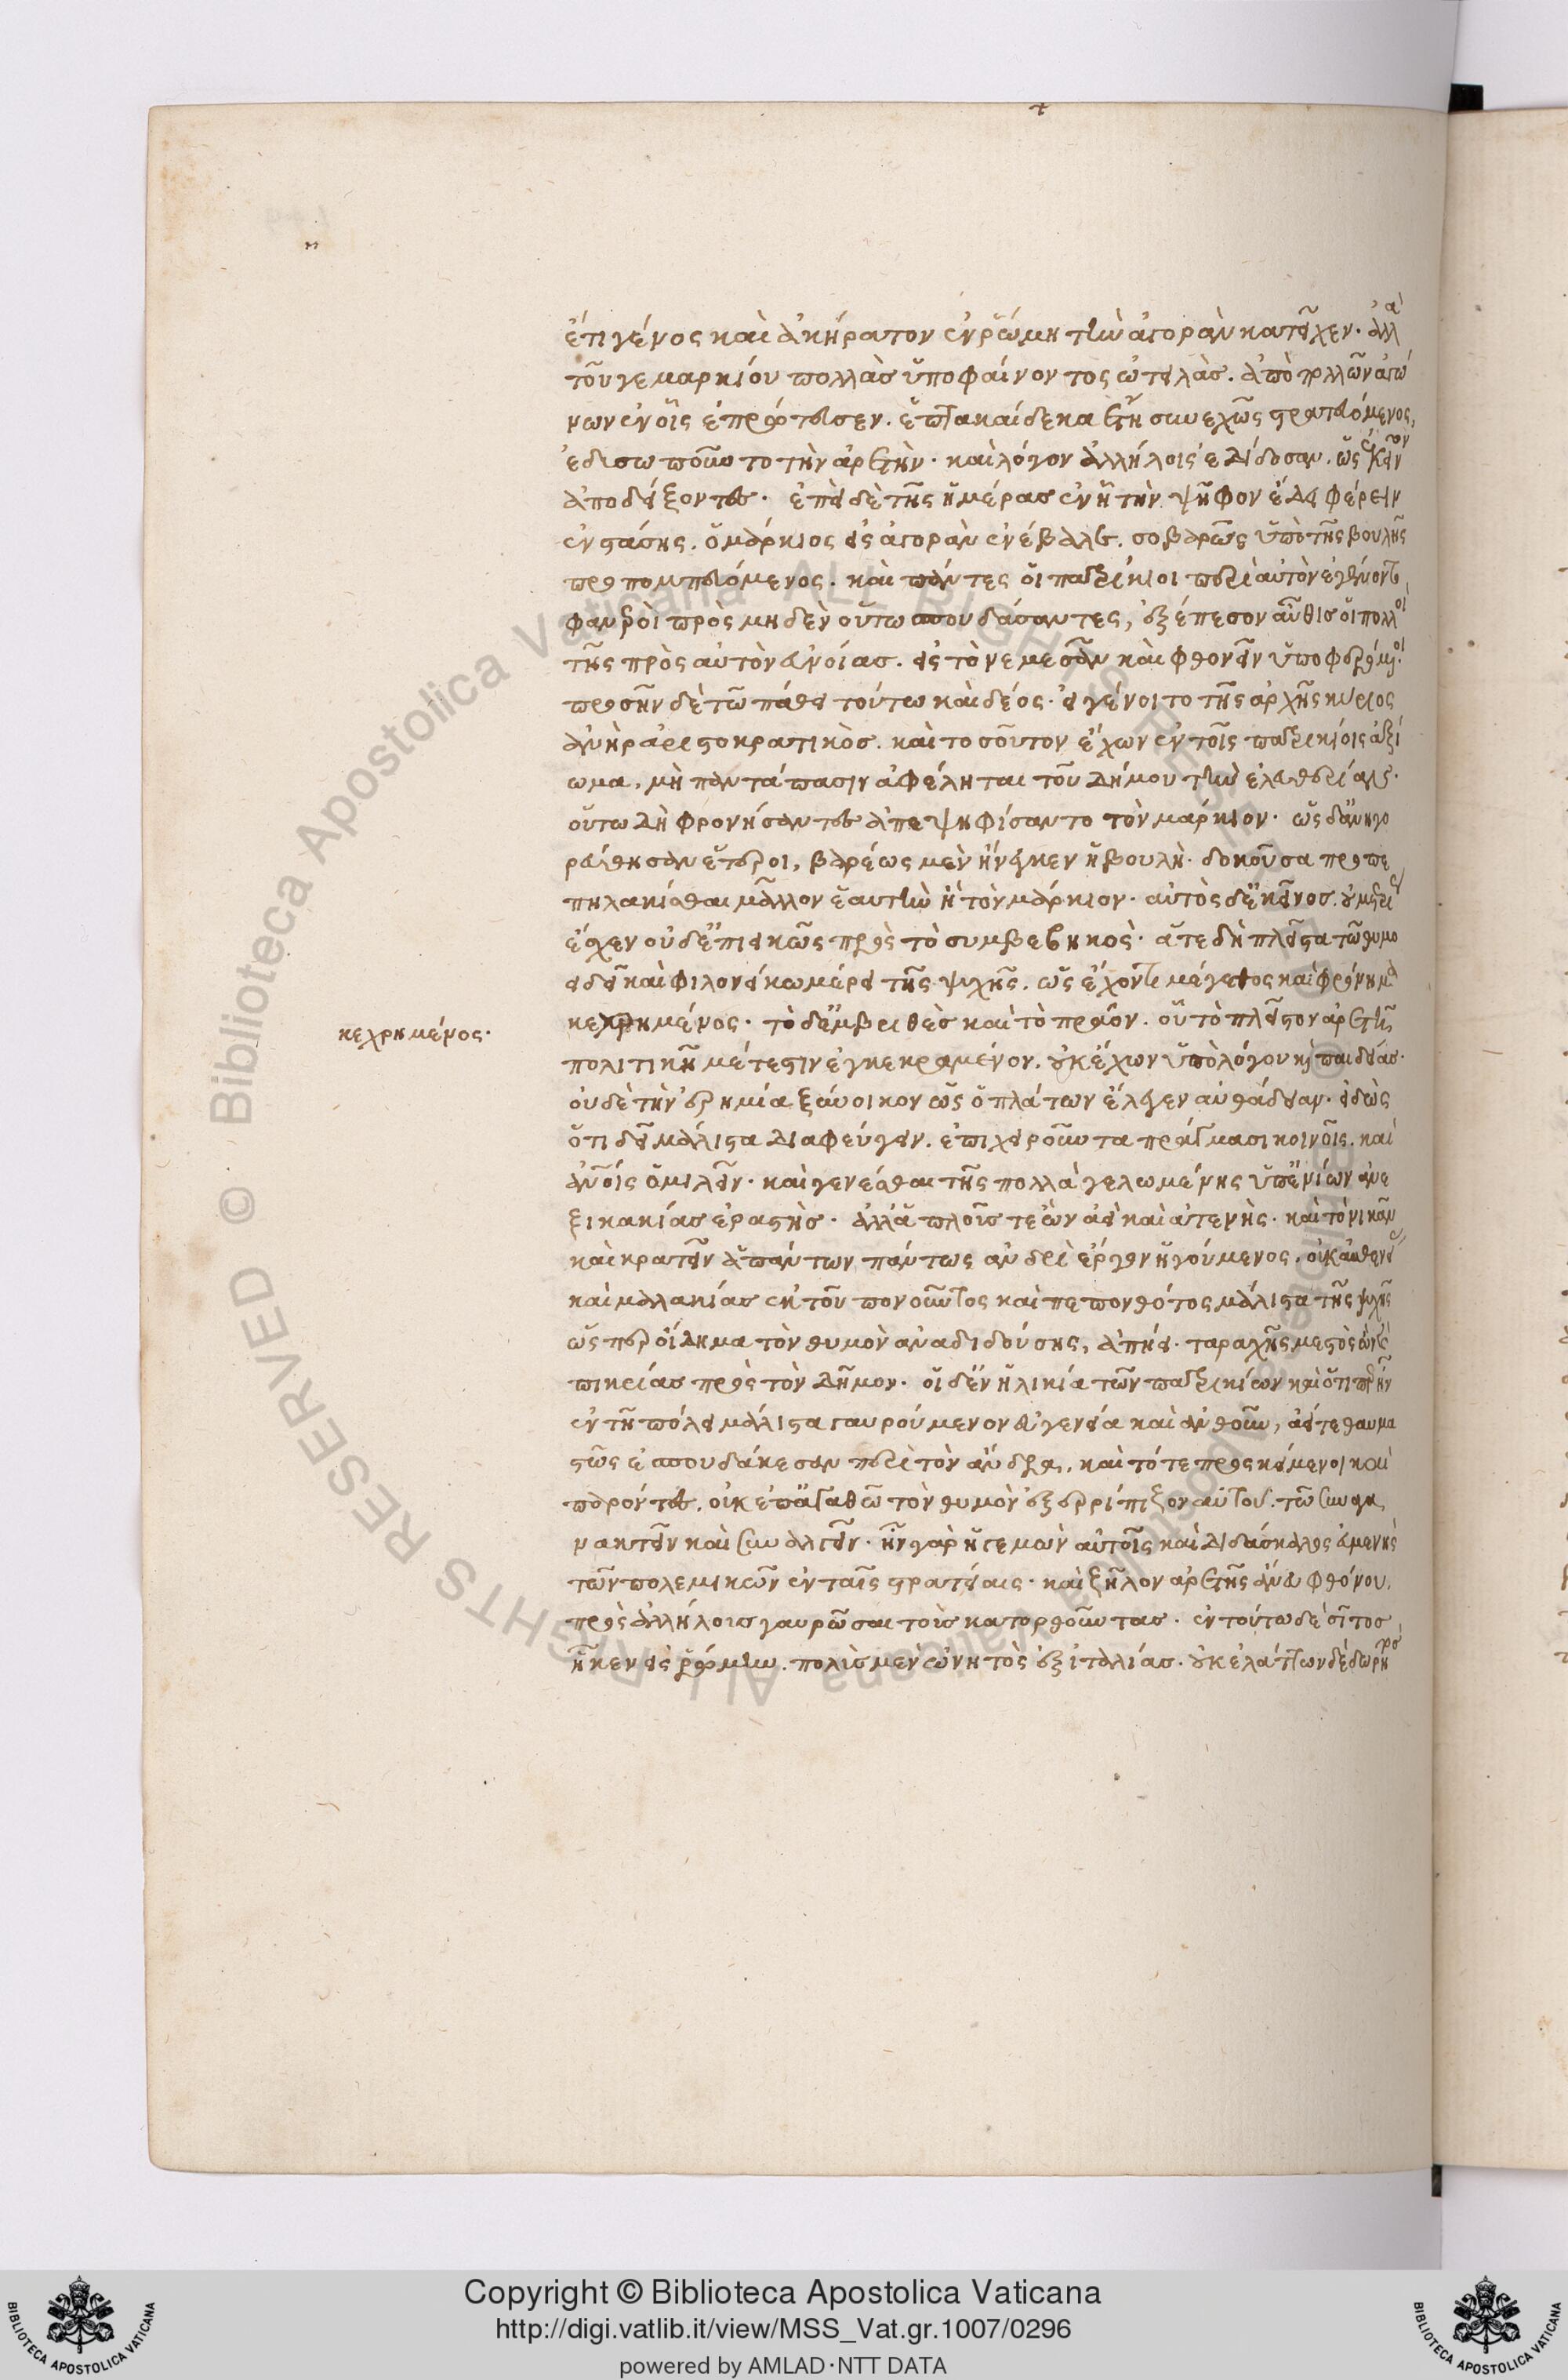 ἔτι γένος καὶ ἀκήρατον ἐν ῥώμη τὴν ἀγορὰν κατεῖχεν. ἀλλὰ
τοῦ γε μαρκίου πολλὰς ὑποφαίνοντος ὠτειλὰς. ἀπὸ πολλῶν ἀγώ
νων ἐν οἷς ἐπρώτευσεν. ἑπτακαίδεκα ἔτη συνεχῶς στρατευόμενος,
ἐδυσωποῦντο τὴν ἀρετὴν. καὶ λόγον ἀλλήλοις ἐδίδοσαν. ὡς ἐκεῖνον
ἀποδείξοντες. ἐπεὶ δὲ τῆς ἡμέρας ἐν ᾗ τὴν ψῆφον ἔδει φέρειν
ἐνστάσης. ὁ μάρκιος εἰς ἀγορὰν ἐνέβαλε. σοβαρῶς ὑπὸ τῆς βουλῆς
προπομπευόμενος. καὶ πάντες οἱ πατρίκιοι περὶ αὐτὸν ἐγένοντο
φανεροὶ πρὸς μηδὲν οὕτω σπουδάσαντες, ἐξέπεσον αὖθις οἱ πολλοὶ
τῆς πρὸς αὐτὸν εὐνοίας. εἰς τὸ νεμεσᾶν καὶ φθονεῖν ὑποφερόμενοι.
προσῆν δὲ τῶ πάθει τούτω καὶ δέος. εἰ γένοιτο τῆς ἀρχῆς κύριος
ἀνὴρ ἀριστοκρατικὸς. καὶ τοσοῦτον ἔχων ἐν τοῖς πατρικίοις ἀξί
ωμα, μὴ παντάπασιν ἀφέληται τοῦ δήμου τὴν ἐλευθερίαν.
οὕτω δὴ φρονήσαντες ἀπεψηφίσαντο τὸν μάρκιον. ὡς δ' ἀνηγο
ρεύθησαν ἕτεροι, βαρέως μὲν ἤνεγκεν ἡ βουλὴ. δοκοῦσα προπε
πηλακίσθαι μᾶλλον ἑαυτὴν ἢ τὸν μάρκιον. αὐτὸς δ' ἐκεῖνος. οὐ μετρίως
ἔσχεν οὐδ' ἐπιεικῶς πρὸς τὸ συμβεβηκὸς. ἅτε δὴ πλεῖστα τῶ θυμο
ειδεῖ καὶ φιλονείκω μέρει τῆς ψυχῆς. ὡς ἔχοντι μέγεθος καὶ φρόνημα
κεχρημένος. τὸ δ' ἐμβριθὲς καὶ τὸ πρᾶον. οὗ τὸ πλεῖστον ἀρετῆ
πολιτικῆ μέτεστιν ἐγκεκραμένον. οὐκ ἔχων ὑπὸ λόγου καὶ παιδείας.
οὐδὲ τὴν ἐρημία ξύνοικον ὡς ὁ πλάτων ἔλεγεν αὐθάδειαν. εἰδὼς
ὅτι δεῖ μάλιστα διαφεύγειν. ἐπιχειροῦντα πράγμασι κοινοῖς. καὶ
ἀνοις ὁμιλεῖν. καὶ γενέσθαι τῆς πολλὰ γελωμένης ὑπ' ἐνίων ἀνε
ξικακίας ἐραστὴς. ἀλλ' ἁπλοῦς τε ὢν ἀεὶ καὶ ἀτενὴς. καὶ τὸ νικᾶν
καὶ κρατεῖν ἁπάντων πάντως ἀνδρὶ ἔργον ἡγούμενος. οὐκ ἀσθενείας
καὶ μαλακίας ἐκ τοῦ πονοῦντος καὶ πεπονθότος μάλιστα τῆς ψυχῆς
ὡσπερ οἴδημα τὸν θυμὸν ἀναδιδούσης, ἀπήει. ταραχῆς μεστὸς ὢν καὶ
πικρίας πρὸς τὸν δῆμον. οἱ δ' ἐν ἡλικία τῶν πατρικίων καὶ ὅ τι περ ἦν
ἐν τῆ πόλει μάλιστα γαυρούμενον εὐγενεία καὶ ἀνθοῦν, ἀεί τε θαυμα
στῶς ἐσπουδάκεσαν περὶ τὸν ἄνδρα, καὶ τότε προσκείμενοι καὶ
παρόντες. οὐκ ἐπ' ἀγαθῶ τὸν θυμὸν ἐξερρίπιζον αὐτοῦ. τῶ συναγα
νακτεῖν καὶ συναλγεῖν. ἦν γὰρ ἡγεμὼν αὐτοῖς καὶ διδάσκαλος εὐμενὴς
τῶν πολεμικῶν ἐν ταῖς στρατείαις. καὶ ζῆλον ἀρετῆς ἄνευ φθόνου.
πρὸς ἀλλήλους γαυρῶσαι τοὺς κατορθοῦντας. ἐν τούτω δὲ σῖτος
ἧκεν εἰς ῥώμην. πολὺς μὲν ὠνητὸς ἐξ ἰταλίας. οὐκ ἐλάττων δὲ δωρητὸς
κεχρημένος.
Copyright © Biblioteca Apostolica Vaticana
http://digi.vatlib.it/view/MSS_Vat.gr.1007/0296
powered by AMLAD·NTT DATA
BIBLIOTECA APOSTOLICA VATICANA
BIBLIOTECA APOSTOLICA VATICANA
Biblioteca Apostolica Vaticana ALL RIGHTS RESERVED ©
Biblioteca Apostolica Vaticana ALL RIGHTS RESERVED ©